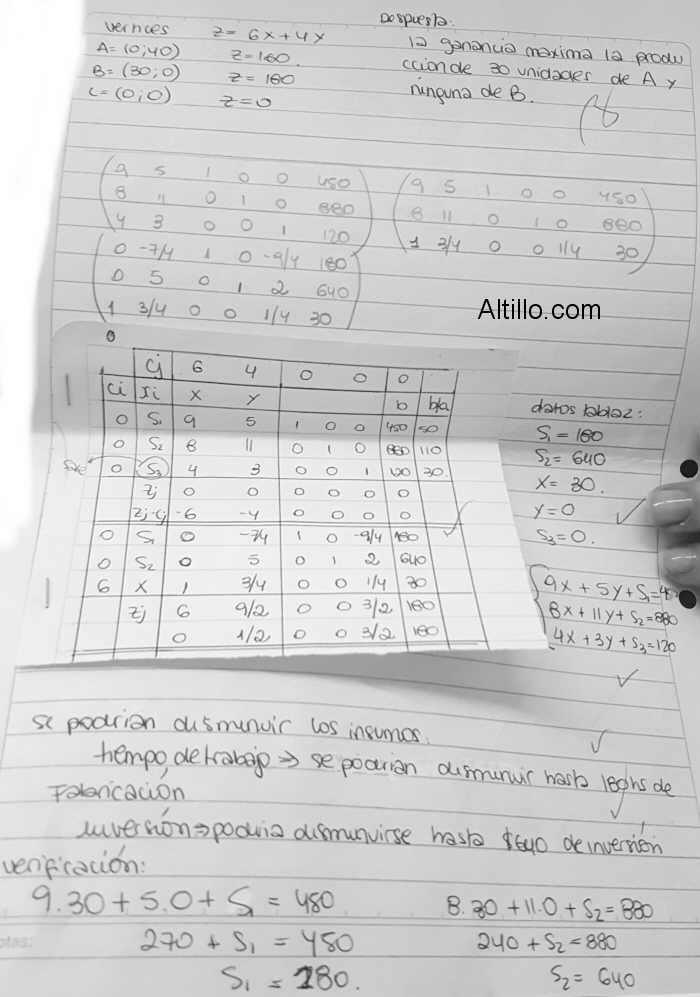 vertices z= 6x+4y
A= (0;40) z=160.
B= (30;0) z= 180
C= (0;0) z=0
Respuesta:
la ganancia maxima la produ
cción de 30 unidades de A y
ninguna de B.
9 5 1 0 0 450
8 11 0 1 0 880
4 3 0 0 1 120
9 5 1 0 0 450
8 11 0 1 0 880
1 3/4 0 0 1/4 30
0 -7/4 1 0 -9/4 180
0 5 0 1 2 640
1 3/4 0 0 1/4 30
Altillo.com
0
Cj 6 4 0 0 0
Ci Xi X Y b b/a
0 S1 9 5 1 0 0 450 50
0 S2 8 11 0 1 0 880 110
0 S3 4 3 0 0 1 120 30.
Zj 0 0 0 0 0 0
Zj-Cj -6 -4 0 0 0 0
0 S1 0 -7/4 1 0 -9/4 180
0 S2 0 5 0 1 2 640
6 X 1 3/4 0 0 1/4 30
Zj 6 9/2 0 0 3/2 180
0 1/2 0 0 3/2 180
datos tabla 2:
S1 = 180
S2 = 640
X= 30.
Y=0
S3=0.
9x + 5y + S1=4
8x + 11y + S2=880
4x + 3y + S3=120
se podrían disminuir los insumos.
tiempo de trabajo → se podrían disminuir hasta 180hs de
Fabricación
inversión → podría disminuirse hasta $640 de inversión
verificación:
9.30 + 5.0 + S1 = 450
270 + S1 = 450
S1 = 180.
8.30 + 11.0 + S2 = 880
240 + S2 = 880
S2 = 640